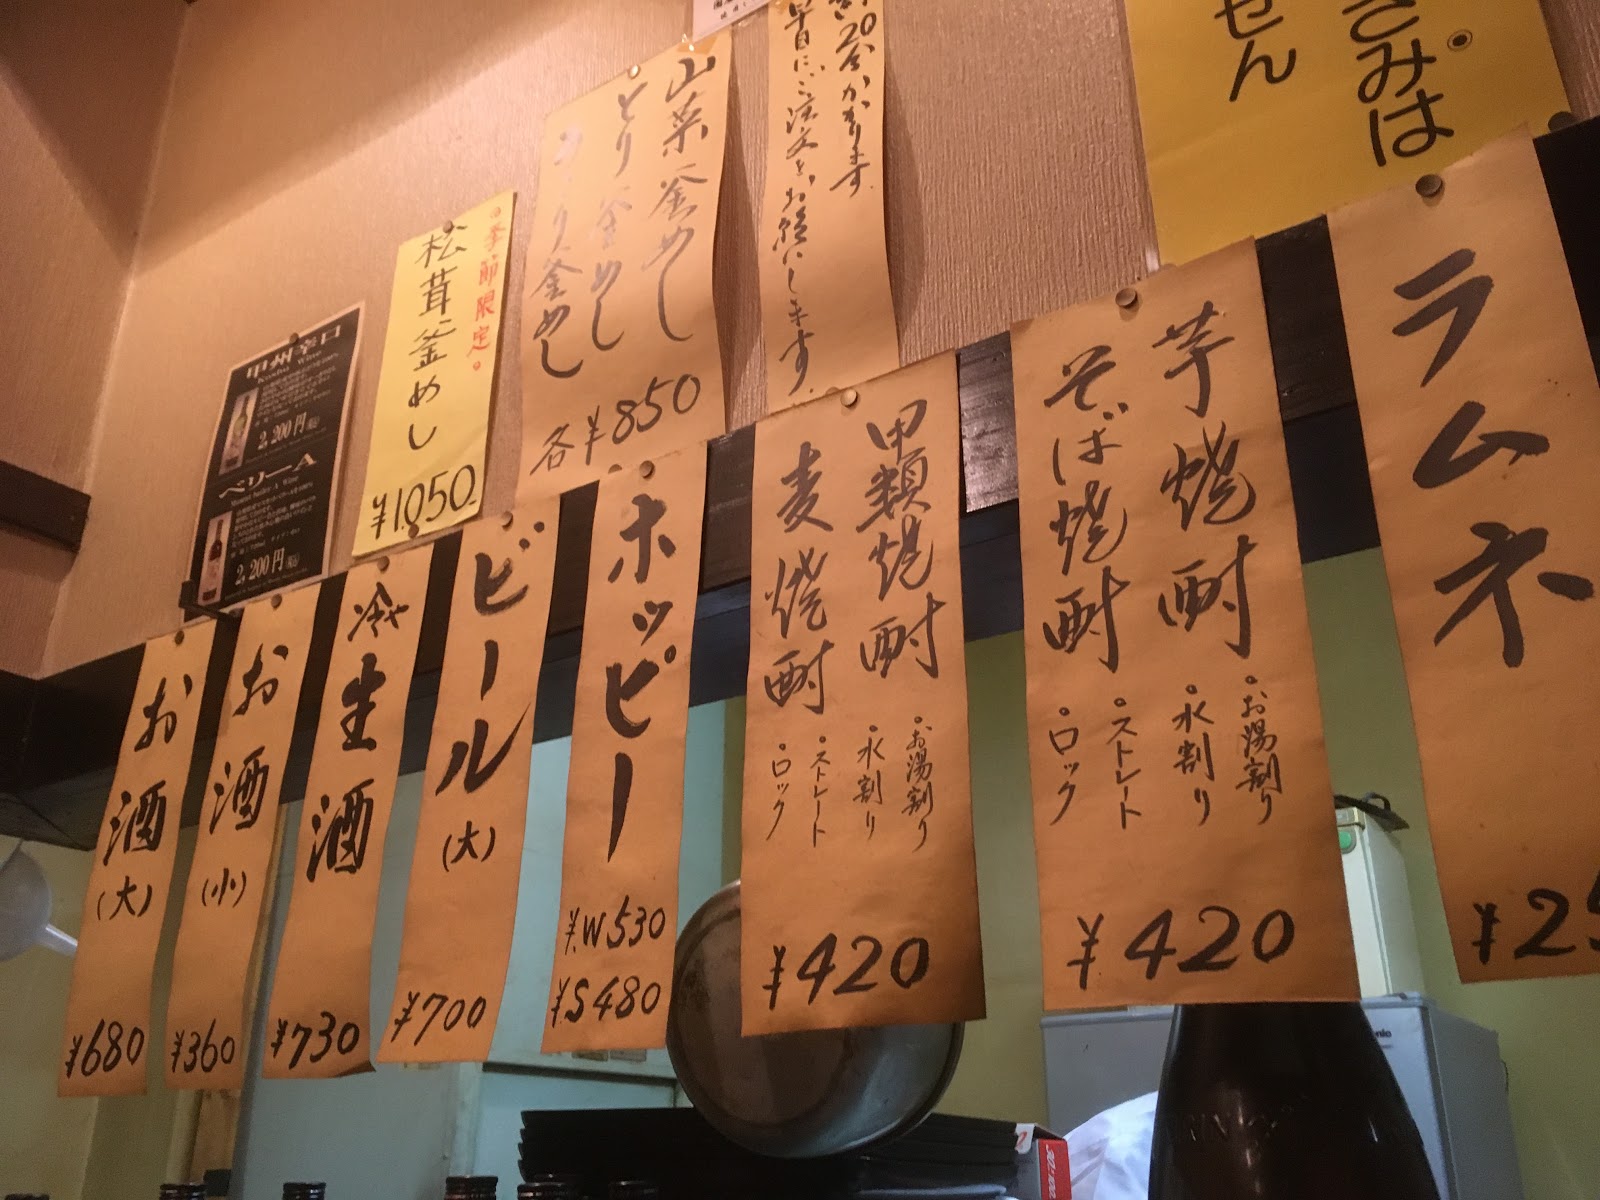 ラムネ
¥25
芋焼酎
・お湯割り
・水割り
そば焼酎
・ストレート
・ロック
¥420
甲類焼酎
・お湯割り
・水割り
麦焼酎
・ストレート
・ロック
¥420
ホッピー
¥.W530
¥.S480
ビール
(大)
¥700
冷や
生酒
¥730
お酒
(小)
¥360
お酒
(大)
¥680
さみは
せん
20分かかります
早目にご注文をお願いします
山菜釜めし
とり釜めし
釜めし
各¥850
季節限定。
松茸釜めし
¥1.050
甲州辛口
2,200円
ベリーA
2,200円